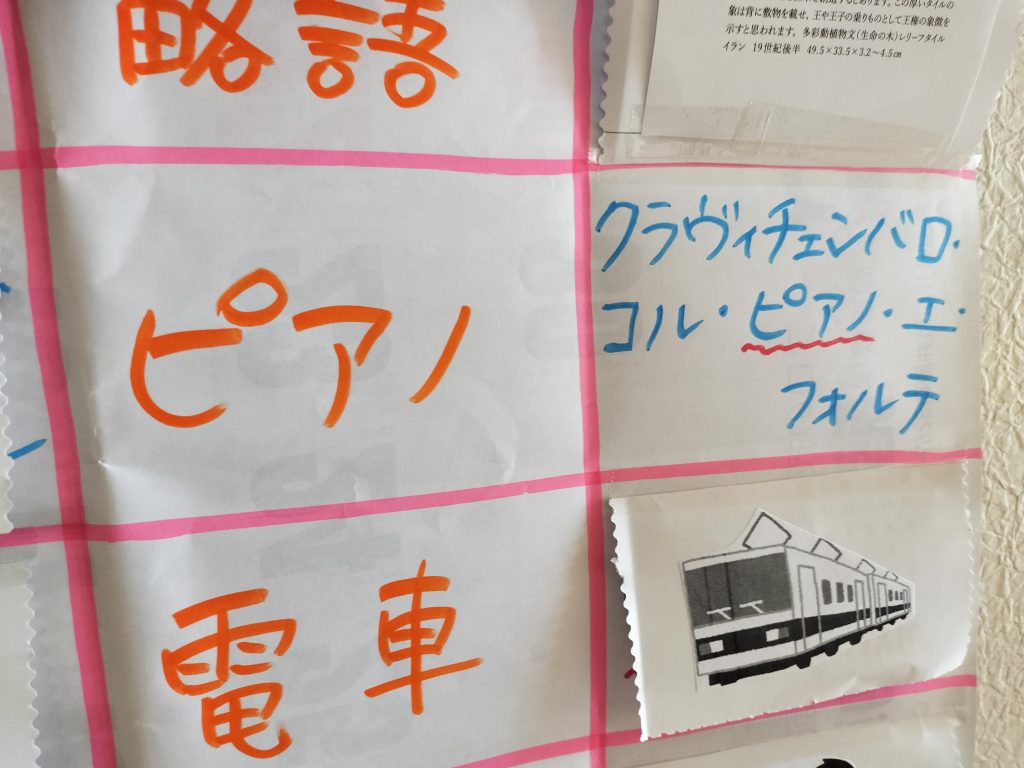 象は背に敷物を載せ、王や王子の乗りものとして王権の象徴を
示すと思われます。多彩動植物文(生命の木)レリーフタイル
イラン 19世紀後半 49.5×33.5×3.2〜4.5㎝
略語
ピアノ
クラヴィチェンバロ・
コル・ピアノ・エ・
フォルテ
電車